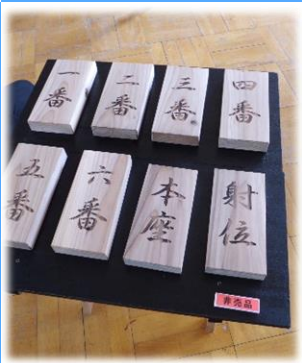 一番
二番
三番
四番
五番
六番
本座
射位
非売品